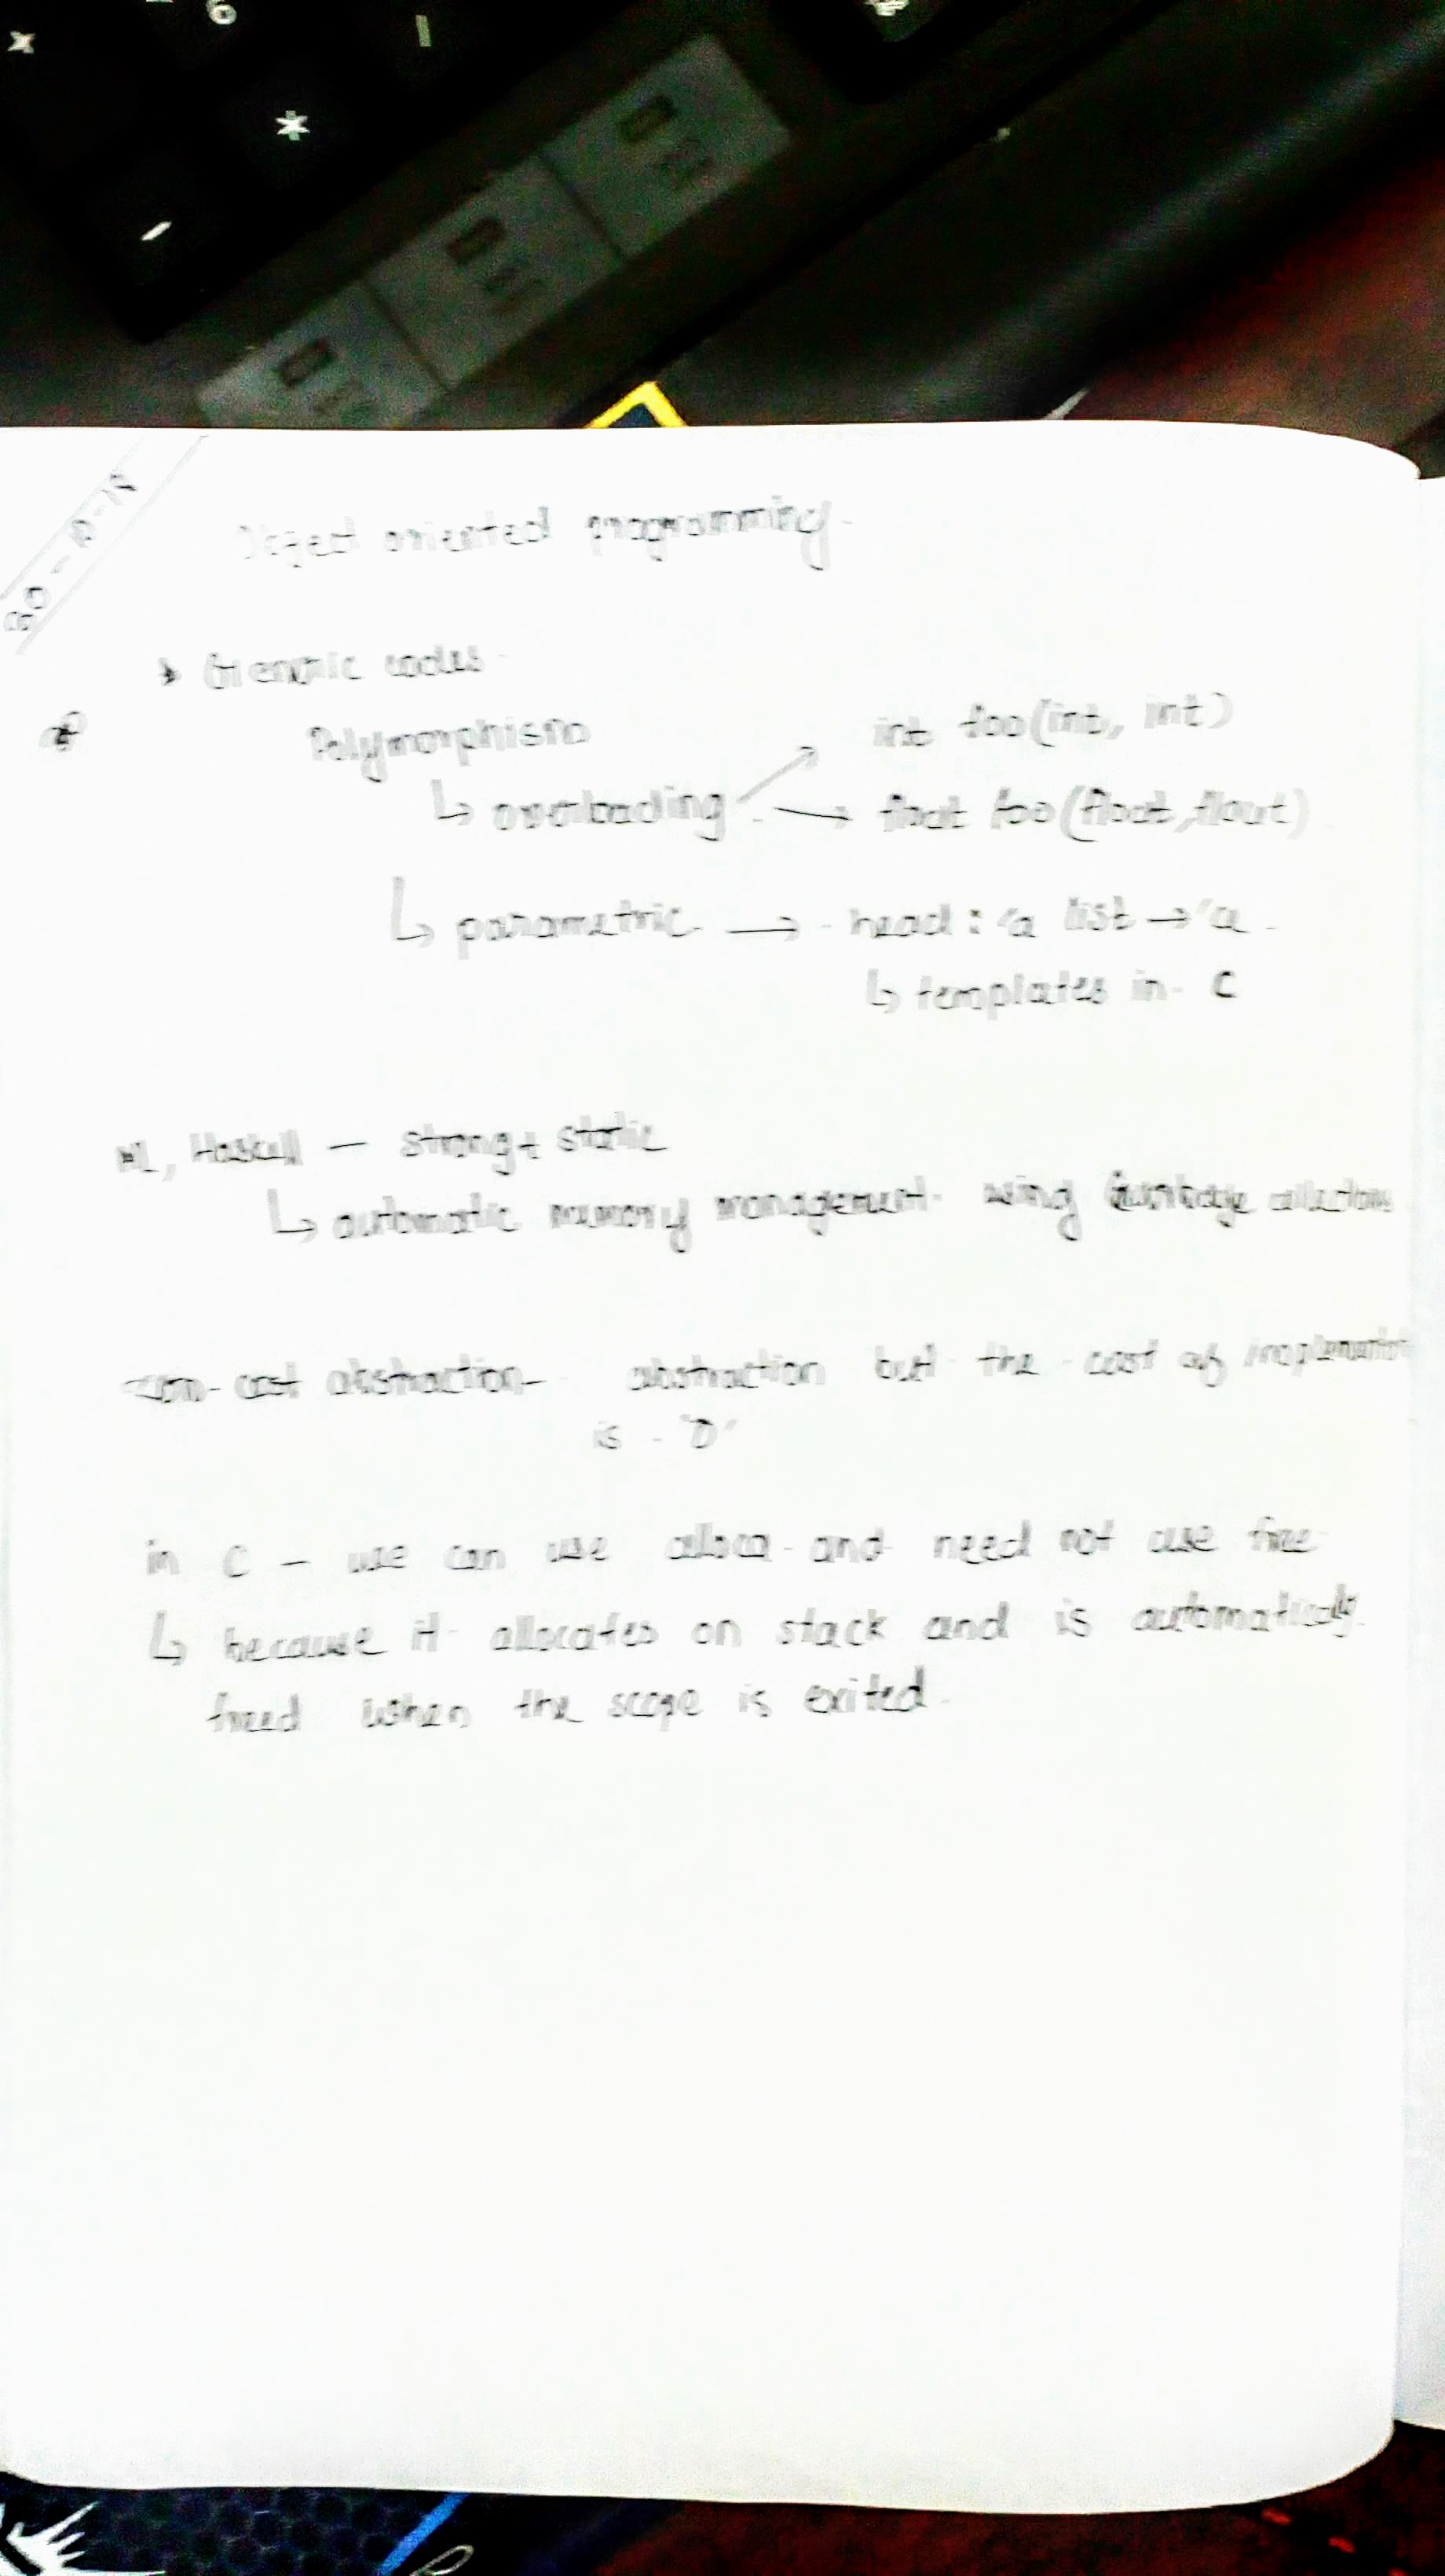 Object oriented programming.
Generic codes.
Polymorphism
int foo(int, int)
↳ overloading
→ float foo(float, float)
↳ parametric → head : 'a list → 'a
↳ templates in C
ML, Haskell — strong + static
↳ automatic memory management using Garbage collection
zero-cost abstraction - abstraction but the cost of
is "0"
in C — we can use alloca and need not use free
↳ because it allocates on stack and is automatically
freed when the scope is exited.